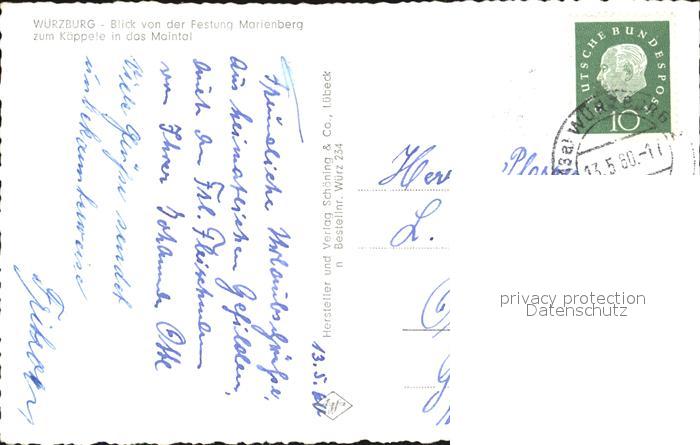 WÜRZBURG - Blick von der Festung Marienberg
zum Käppele in das Maintal
13.5.60
Freundliche Urlaubsgrüße,
aus heimatlichen Gefilden,
auch an Frl. Fleischmann
von Ihrer Johanna Otte
Viele Grüße sendet
unbekannterweise
Hersteller und Verlag Schöning & Co., Lübeck
n Bestellnr. Würz 234
DEUTSCHE BUNDESPOST
10
WÜRZBURG
13.5.60.-17
Herr
L.
privacy protection
Datenschutz